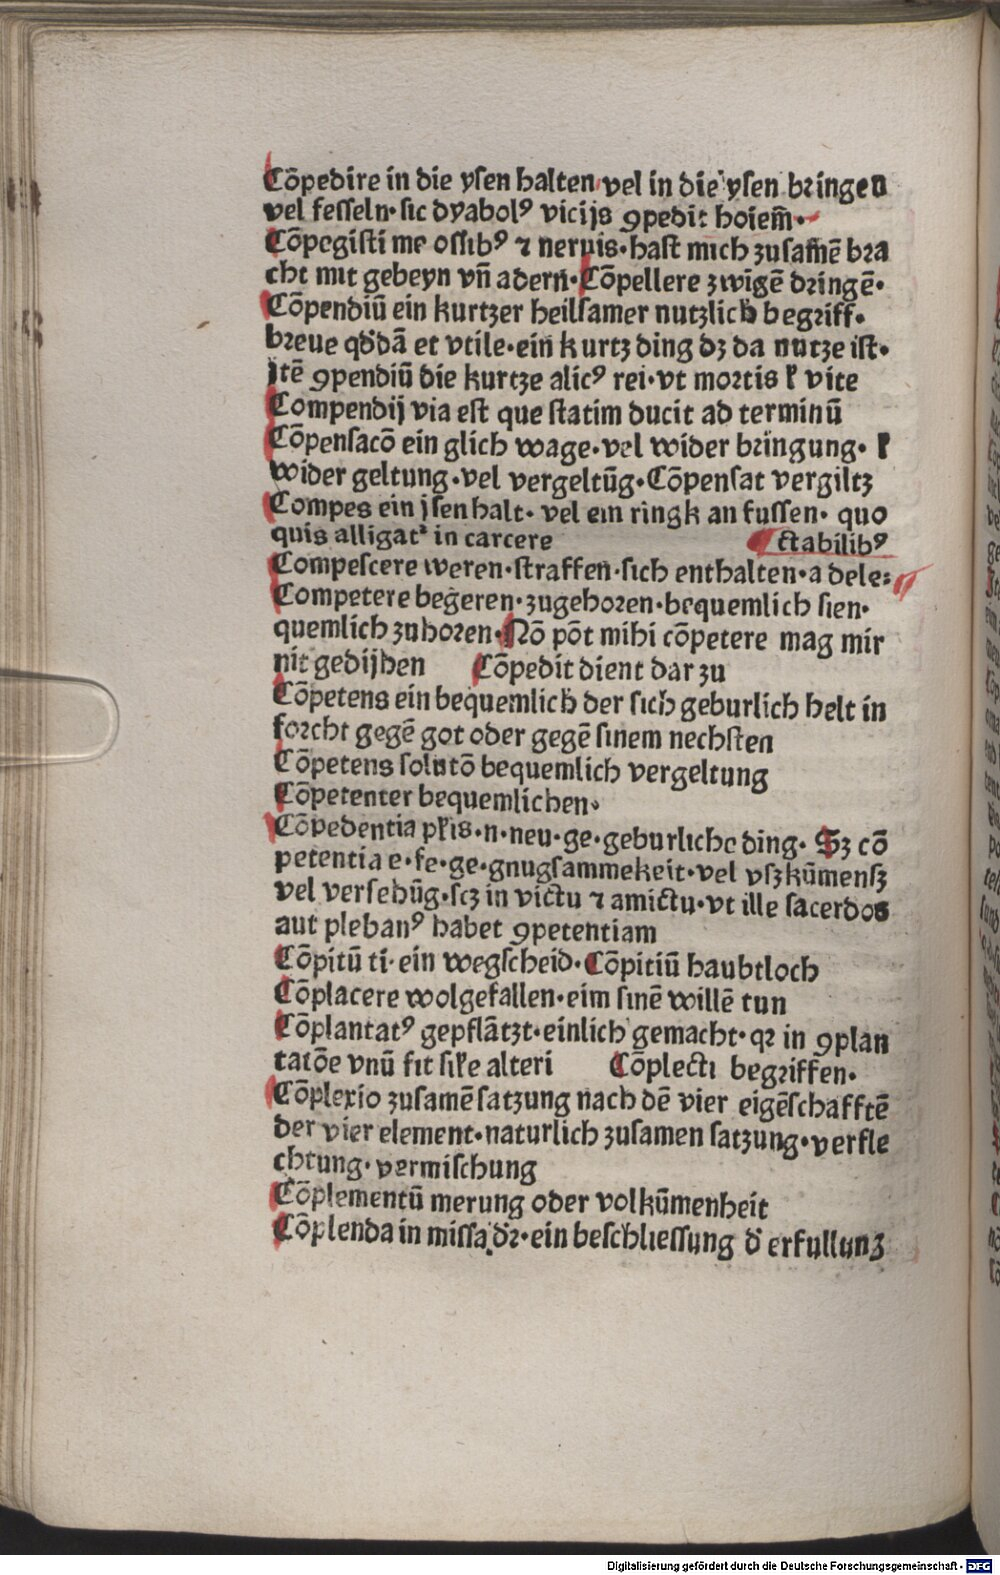 Cōpedire in die ysen halten vel in die ysen bringen
vel fesseln· sic dyabolꝰ vicijs ꝯpedit hoiem̄·
Cōpegisti me ossibꝰ ⁊ neruis·hast mich zusam̄ē bra
cht mit gebeyn vn̄ adern·Cōpellere zwīgē dringē·
Cōpendiū ein kurtzer heilsamer nutzlich begriff·
breue qd̛dā et vtile·ein kurtz ding dz da nutze ist·
Jtē ꝯpendiū die kurtze alicꝰ rei·vt mortis ł vite
Compendij via est que statim ducit ad terminū
Cōpensacō ein glich wage·vel wider bringung· ł
wider geltung·vel vergeltūg·Cōpensat vergiltz
Compes ein jsenhalt· vel ein ringk an fussen· quo
quis alligat᷑ in carcere ctabilibꝰ
Compescere weren·straffen·sich enthalten·a dele⸗
Competere begeren·zugehoren·bequemlich sien·
quemlich zuhoren·Nō pōt mihi cōpetere mag mir
nit gedijhen Cōpedit dient dar zu
Cōpetens ein bequemlich der sich geburlich helt in
forcht gegē got oder gegē sinem nechsten
Cōpetens solutō bequemlich vergeltung
Cōpetenter bequemlichen·
Cōpedentia pł̄is·n·neu·ge·geburliche ding· Sz cō
petentia e·fe·ge·gnugsammekeit·vel vszkūmensz
vel versehūg·scz in victu ⁊ amictu·vt ille sacerdos
aut plebanꝰ habet ꝯpetentiam
Cōpitū ti·ein wegscheid·Cōpitiū haubtloch
Cōplacere wolgefallen·eim sinē willē tun
Cōplantatꝰ gepflātzt·einlich gemacht·qꝛ in ꝯplan
tatōe vnū fit siłe alteri Cōplecti begriffen·
Cōplexio zusamēsatzung nach dē vier eigēschafftē
der vier element·naturlich zusamen satzung·verfle
chtung·vermischung
Cōplementū merung oder volkūmenheit
Cōplenda in missa dꝛ̄·ein beschliessung d̛ erfullung
Digitalisierung gefördert durch die Deutsche Forschungsgemeinschaft - DFG